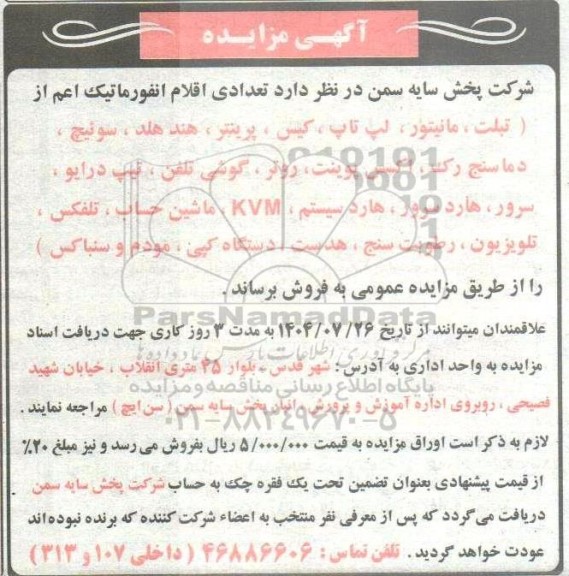 آگهـی مزایـده
شرکت پخش سایه سمن در نظر دارد تعدادی اقلام انفورماتیک اعم از
( تبلت ، مانیتور ، لپ تاپ ، کیس ، پرینتر ، هند هلد ، سوئیچ ،
دماسنج رک ، اکسس پوینت، روتر ، گوشی تلفن ، تیپ درایو ،
سرور ، هارد سرور ، هارد سیستم ، KVM ، ماشین حساب ، تلفکس ،
تلویزیون ، رطوبت سنج ، هدست ، دستگاه کپی ، مودم و سنباکس )
را از طریق مزایده عمومی به فروش برساند .
علاقمندان میتوانند از تاریخ ۱۴۰۴/۰۷/۲۶ به مدت ۳ روز کاری جهت دریافت اسناد
مزایده به واحد اداری به آدرس : شهر قدس ، بلوار ۴۵ متری انقلاب ، خیابان شهید
فصیحی ، روبروی اداره آموزش و پرورش ، انبار پخش سایه سمن ( سن ایچ ) مراجعه نمایند .
لازم به ذکر است اوراق مزایده به قیمت ۵/۰۰۰/۰۰۰ ریال بفروش می رسد و نیز مبلغ ۲۰٪
از قیمت پیشنهادی بعنوان تضمین تحت یک فقره چک به حساب شرکت پخش سایه سمن
دریافت می گردد که پس از معرفی نفر منتخب به اعضاء شرکت کننده که برنده نبوده اند
عودت خواهد گردید . تلفن تماس : ۴۶۸۸۶۶۰۶ ( داخلی ۱۰۷ و ۳۱۳ )
ParsNamadData
پایگاه اطلاع رسانی مناقصه و مزایده
۰۲۱-۸۸۳۴۹۶۷۰-۵